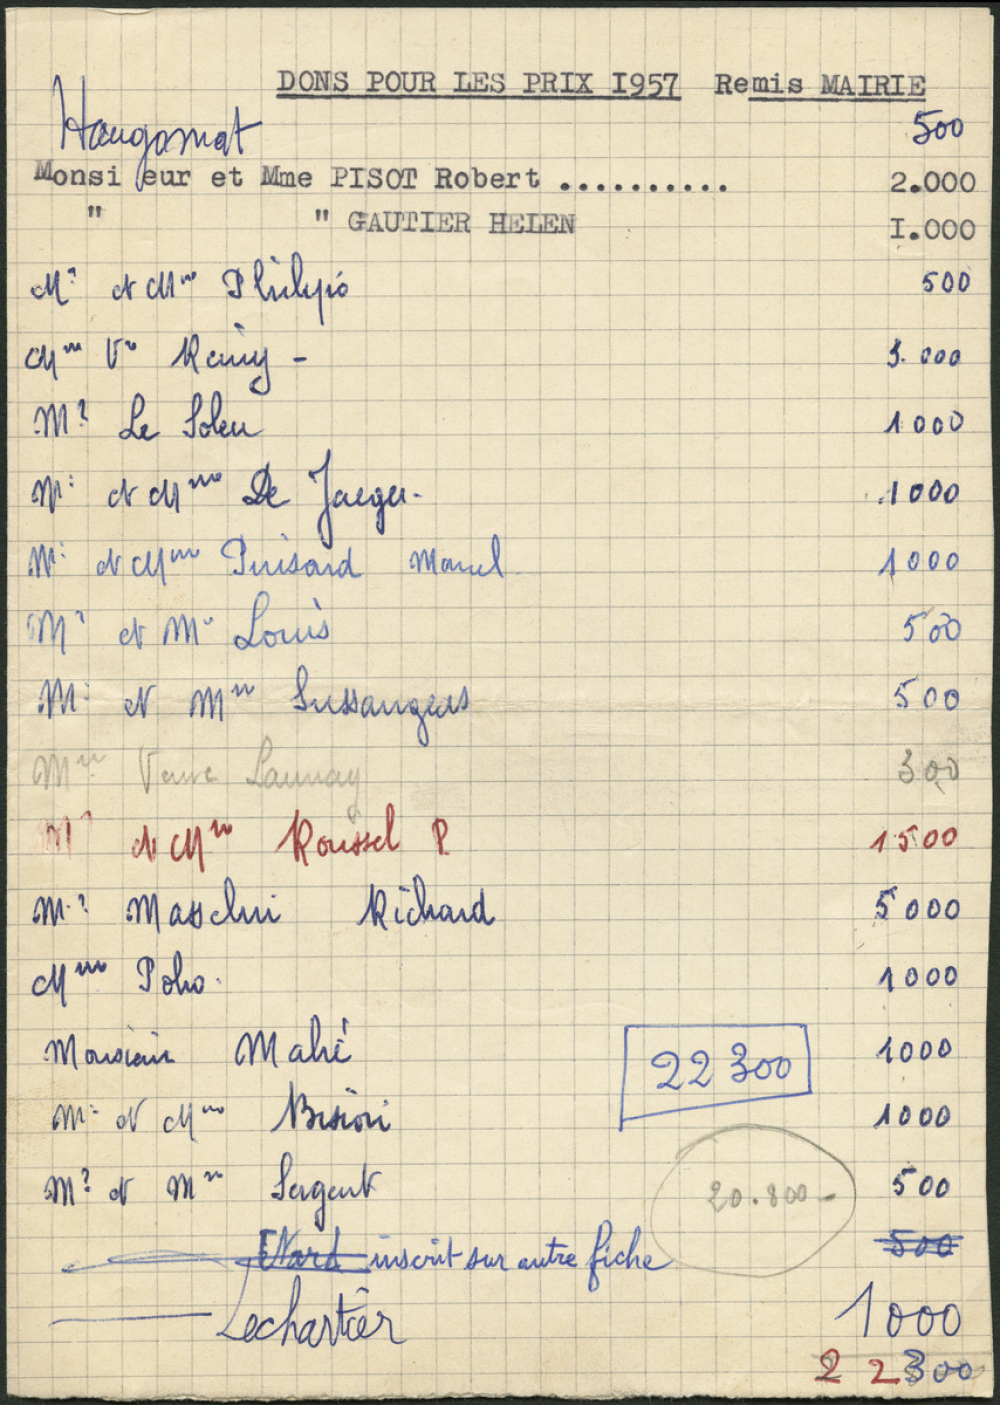 DONS POUR LES PRIX I957 Remis MAIRIE
Haugomat 500
Monsieur et Mme PISOT Robert .......... 2.000
" " GAUTIER HELEN I.000
Mr et Mme Philypó 500
Mme Ve Remy - 3.000
Mr Le Soleu 1000
Mr et Mme De Jaeger. 1000
Mr et Mme Puisard Marcel 1000
Mr et Me Louis 500
Mr et Mme Sussangeas 500
Mme Veuve Launay 300
Mr et Mme Roussel P. 1500
Mr Masclui Richard 5000
Mme Poho. 1000
Monsieur Mahé 1000
22 300
Mr et Mme Bision 1000
Mr et Mme Sergent 500
20.800 -
Nard inscrit sur autre fiche 500
Lechartier 1000
22300